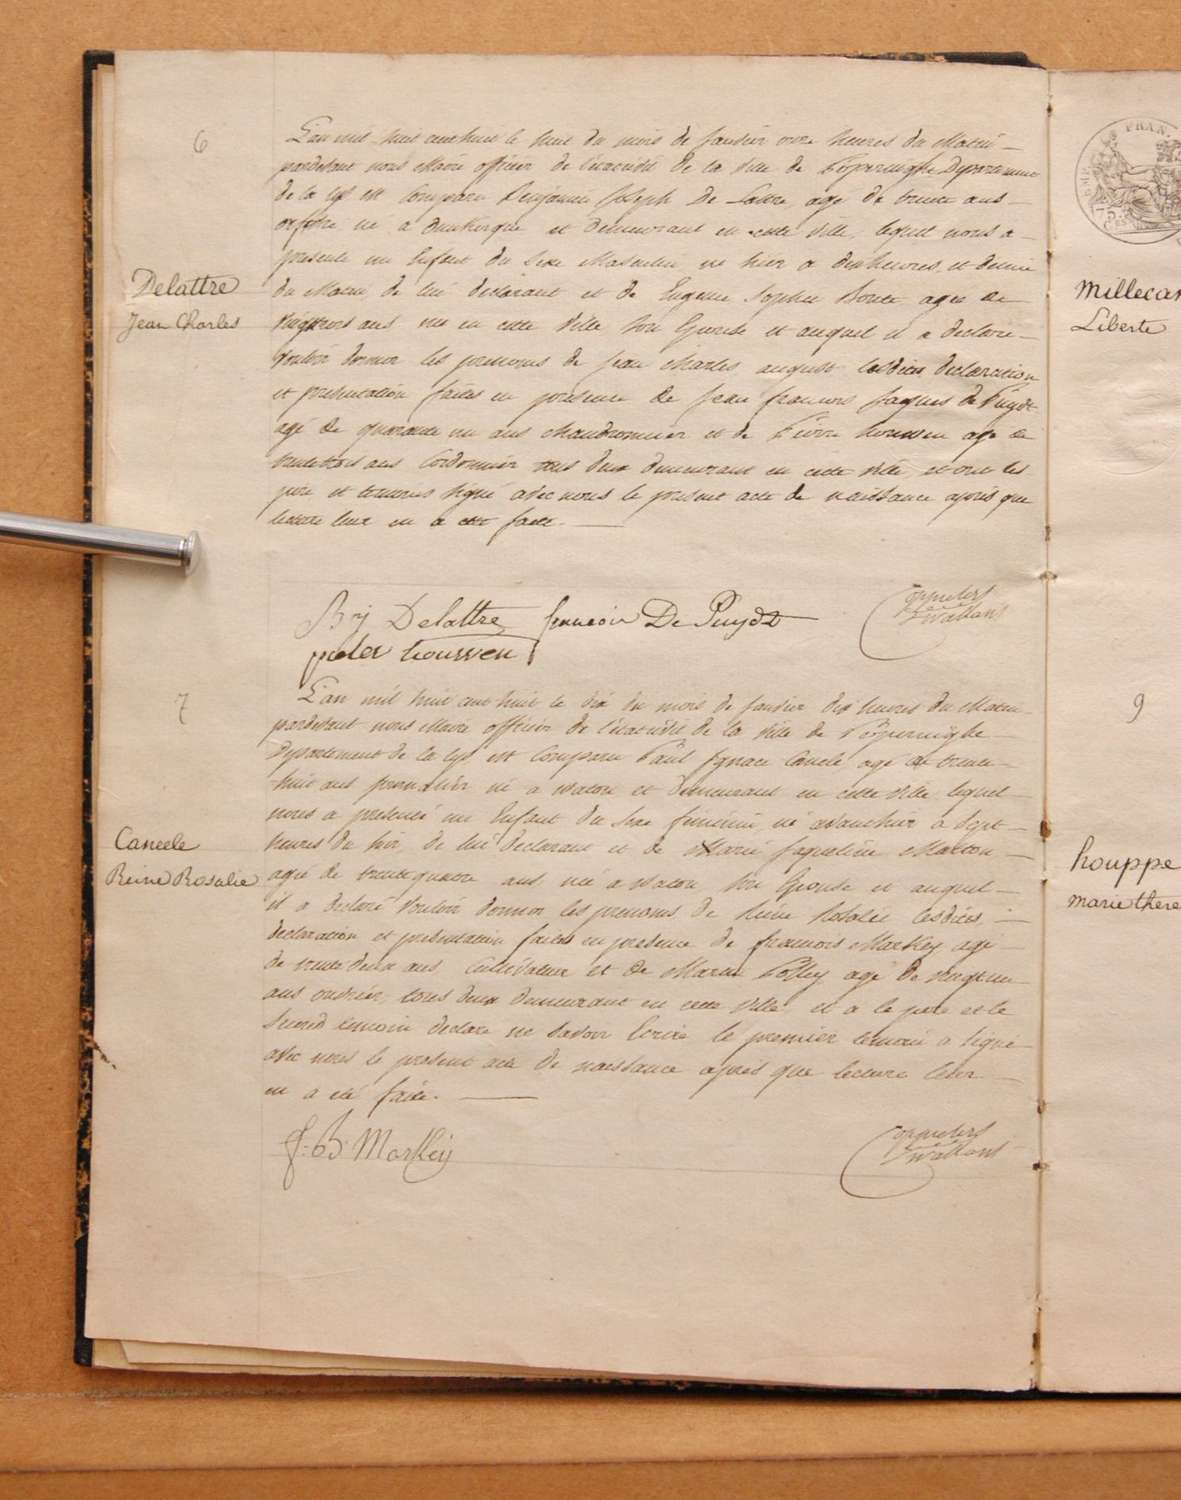 6
L'an mil huit cent huit le huit du mois de Janvier onze heures du Matin
pardevant nous Maire officier de l'état civil de la ville de Poperinghe Departement
de la Lys est Comparu Benjamin Joseph De Lattre agé de trente ans
orfevre né a dunkerque et demeurant en cette ville, lequel nous a
presenté un Enfant du Sexe Masculin né hier a dix heures et demie
Delattre
Jean Charles
du Matin de lui declarant et de Eugenie Sophie agée de
Vingt trois ans née en cette Ville son Epouse et auquel il a declaré
Vouloir donner les prenoms de Jean Charles august lesdites declaration
et presentation faites en presence de Jean francois Jaques de Puydt
agé de quarante un ans Chaudronnier et de Pierre houssen agé de
trente trois ans Cordonnier tous deux demeurant en cette Ville et ont les
pere et temoins signé avec nous le present acte de naissance apres que
lecture leur en a eté faite.
Bnj Delattre francois De Puydt
pieter housseu
7
L'an mil huit cent huit le dix du mois de Janvier dix heures du Matin
pardevant nous Maire officier de l'état civil de la Ville de Poperinghe
Departement de la Lys est Comparu Paul Ignace Caneele agé de trente
huit ans né a Watou et demeurant en cette Ville lequel
nous a presenté un Enfant du Sexe feminin, né avanthier a Sept
Caneele
Reine Rosalie
heures du soir, de lui declarant et de Marie Jaqueline
agée de trente quatre ans née a Watou son Epouse et auquel
il a declaré Vouloir donner les prenoms de Reine Rosalie lesdites
declaration et presentation faites en presence de francois Markey agé
de trente deux ans, Cultivateur et de agé de vingt un
ans ouvrier, tous deux demeurant en cette Ville et a le pere et le
Second temoin declaré ne savoir Ecrire le premier temoin a signé
avec nous le present acte de naissance apres que lecture leur
en a eté faite.
f: B: Markey
FRAN.
75
millecan
Liberte
9
houppe
marie there